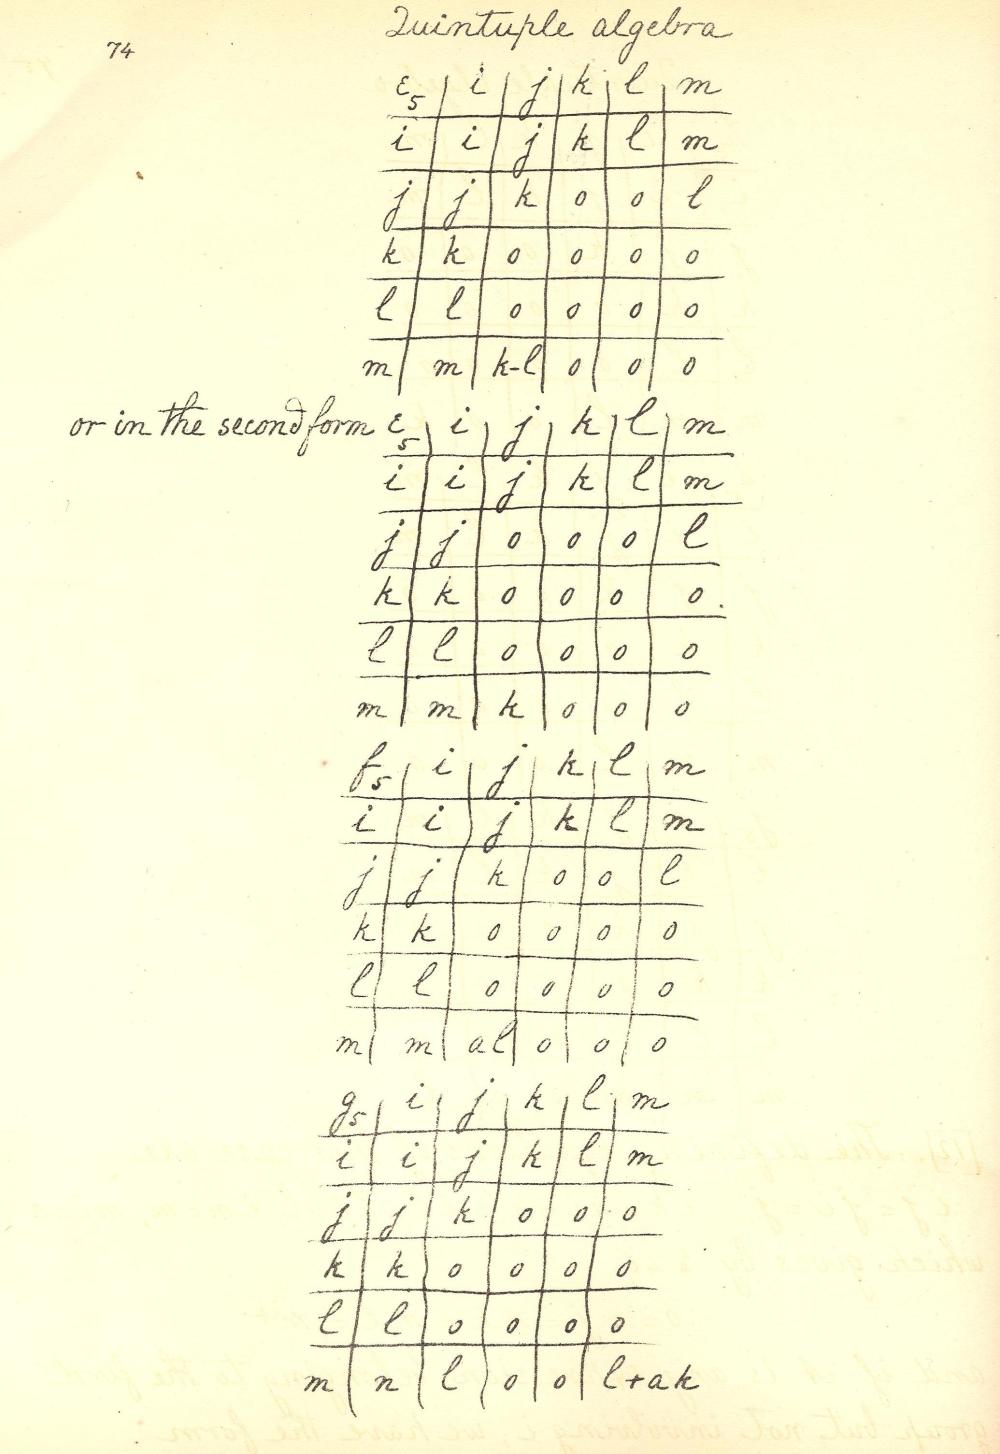 Quintuple algebra
74
ε5 | i | j | k | l | m
i | i | j | k | l | m
j | j | k | o | o | l
k | k | o | o | o | o
l | l | o | o | o | o
m | m | k-l | o | o | o
or in the second form ε5 | i | j | k | l | m
i | i | j | k | l | m
j | j | o | o | o | l
k | k | o | o | o | o.
l | l | o | o | o | o
m | m | k | o | o | o
f5 | i | j | k | l | m
i | i | j | k | l | m
j | j | k | o | o | l
k | k | o | o | o | o
l | l | o | o | o | o
m | m | al | o | o | o
g5 | i | j | k | l | m
i | i | j | k | l | m
j | j | k | o | o | o
k | k | o | o | o | o
l | l | o | o | o | o
m | n | l | o | o | l+ak